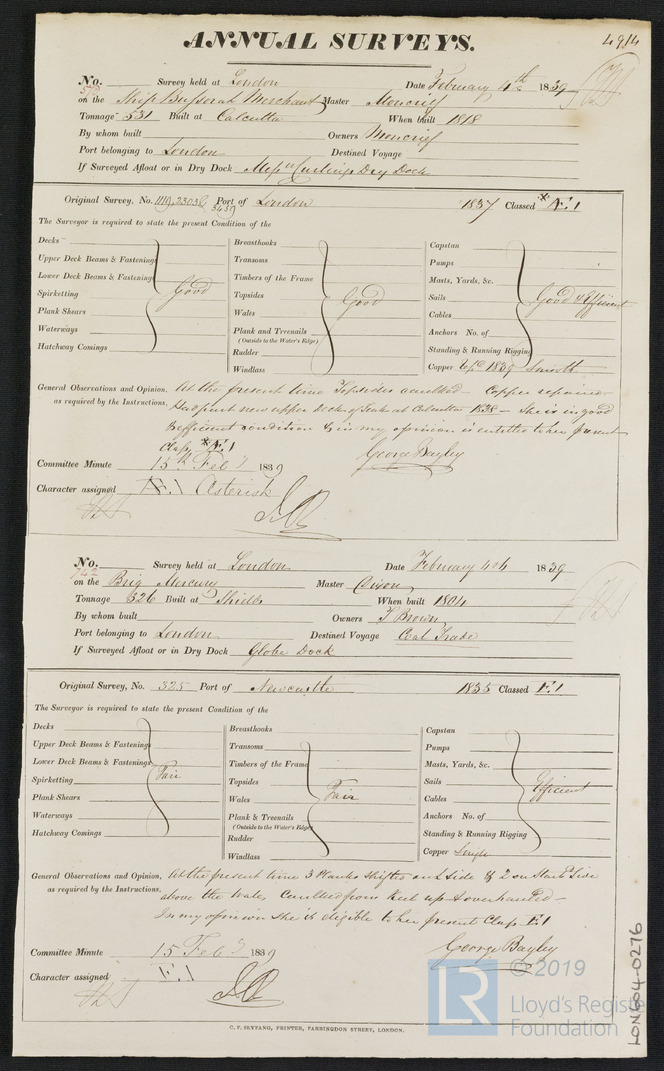 ANNUAL SURVEYS.
4914
No. Survey held at London Date February 4th 1839
on the Ship Bussorah Merchant Master Moncrief
Tonnage 531 Built at Calcutta When built 1818
By whom built Owners Moncrief
Port belonging to London Destined Voyage
If Surveyed Afloat or in Dry Dock Messrs Curlings Dry Dock
Original Survey, No. 1119, 23036, 3439 Port of London 1837 Classed * Æ.1
The Surveyor is required to state the present Condition of the
Decks
Upper Deck Beams & Fastenings
Lower Deck Beams & Fastenings
Spirketting Good
Plank Shears
Waterways
Hatchway Comings
Breasthooks
Transoms
Timbers of the Frame
Topsides Good
Wales
Plank and Treenails
(Outside to the Water's Edge)
Rudder
Windlass
Capstan
Pumps
Masts, Yards, &c.
Sails Good & Efficient
Cables
Anchors No. of
Standing & Running Rigging
Copper 1839 Smooth
General Observations and Opinion, At the present time Topsides caulked – Copper repaired
as required by the Instructions. Had part new upper deck of Teak at Calcutta 1838 – She is in good
& efficient condition & in my opinion is entitled to her present
Class * Æ.1
George Bayley
Committee Minute 15th Feby 1839
Character assigned Æ.1 Asterisk
No. Survey held at London Date February 4th 1839
742
on the Brig Mercury Master Dixon
Tonnage 326 Built at Shields When built 1804
By whom built Owners T Brown
Port belonging to London Destined Voyage Coal Trade
If Surveyed Afloat or in Dry Dock Globe Dock
Original Survey, No. 325 Port of Newcastle 1835 Classed E.1
The Surveyor is required to state the present Condition of the
Decks
Upper Deck Beams & Fastenings
Lower Deck Beams & Fastenings
Spirketting Fair
Plank Shears
Waterways
Hatchway Comings
Breasthooks
Transoms
Timbers of the Frame
Topsides
Wales Fair
Plank & Treenails
(Outside to the Water's Edge)
Rudder
Windlass
Capstan
Pumps
Masts, Yards, &c.
Sails Efficient
Cables
Anchors No. of
Standing & Running Rigging
Copper Single
General Observations and Opinion, At the present time 3 Planks shifted on L Side & 2 on Starbd Side
as required by the Instructions. above the Wales, Caulked from Keel up & overhauled –
In my opinion she is eligible to her present Class E.1
George Bayley
Committee Minute 15 Feby 1839
Character assigned E.1
C. F. SEYFANG, PRINTER, FARRINGDON STREET, LONDON.
LON604-0276
LR
© 2019
Lloyd's Registe
Foundation